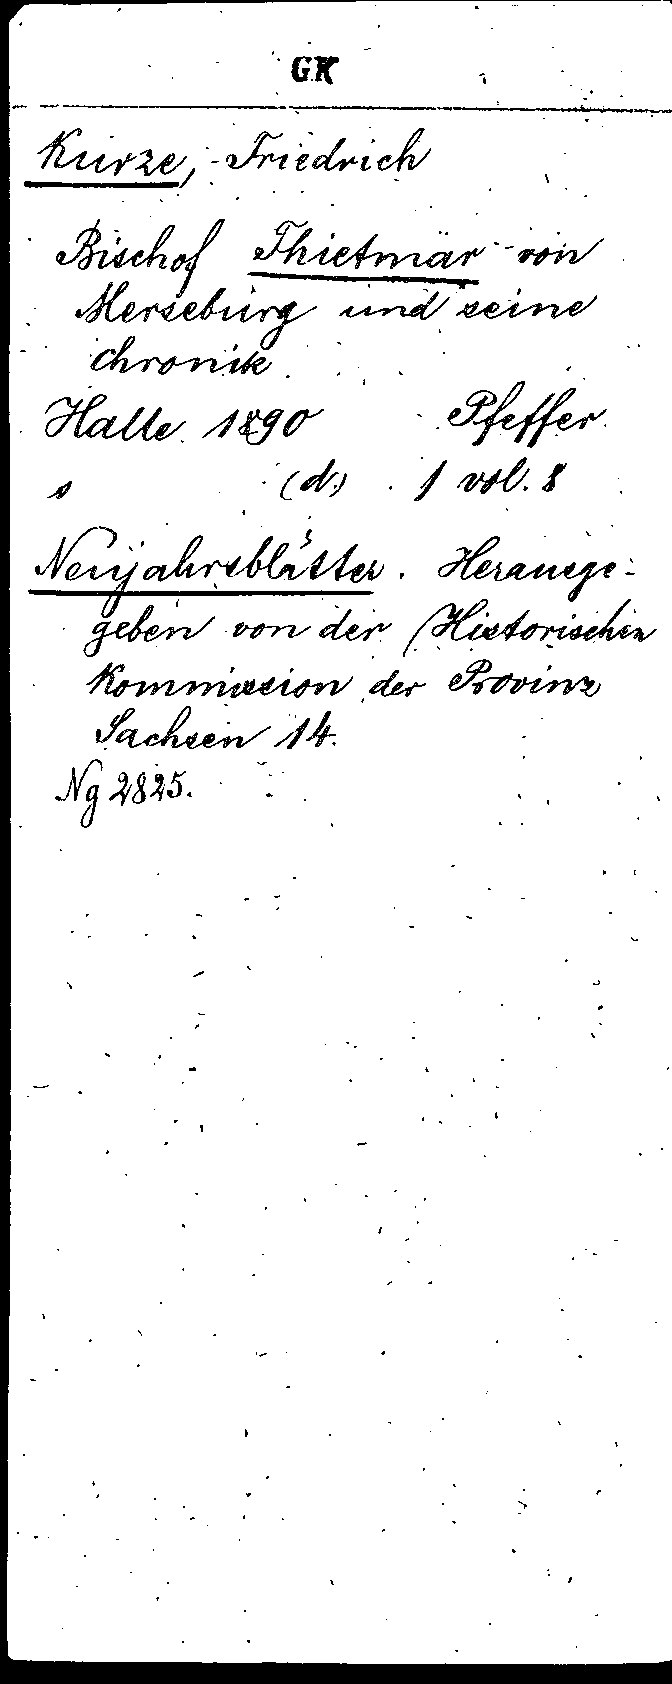 GK
Kurze, Friedrich
Bischof Thietmar von
Merseburg und seine
Chronik.
Halle 1890 Pfeffer
s (d.) 1 vol. 8
Neujahrsblätter. Herausge-
geben von der Historischen
Kommission der Provinz
Sachsen 14.
Ng 2825.